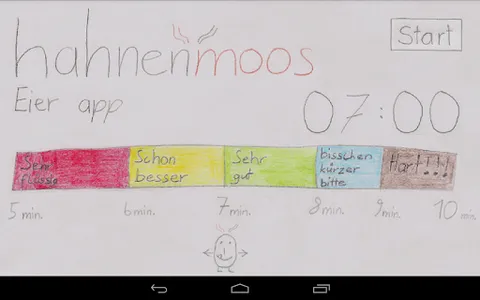 hahnenmoos
Start
Eier app
07:00
Sehr
flüssig
Schon
besser
Sehr
gut
bisschen
kürzer
bitte
Hart!!!
5 min.
6 min.
7 min.
8 min.
9 min.
10 min.